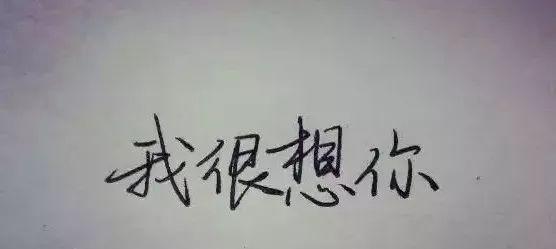 我很想你